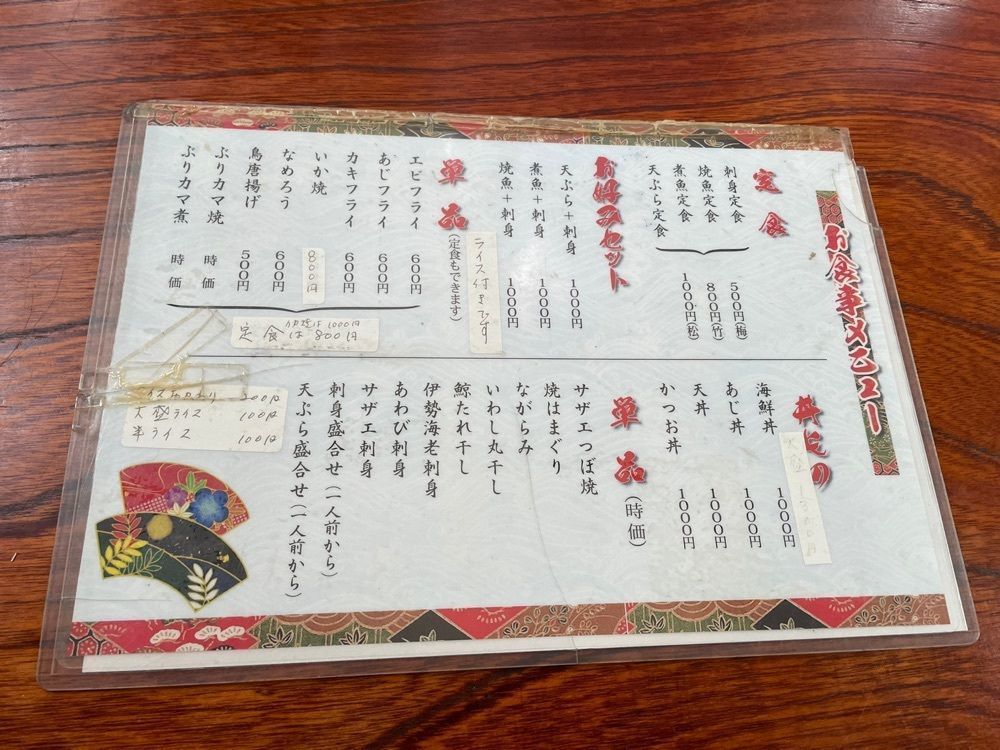 お食事メニュー
定食
刺身定食
焼魚定食
煮魚定食
天ぷら定食
500円(梅)
800円(竹)
1000円(松)
お好みセット
天ぷら+刺身 1000円
煮魚+刺身 1000円
焼魚+刺身 1000円
ライス付きです
単品
(定食もできます)
エビフライ 600円
あじフライ 600円
カキフライ 600円
いか焼 800円
なめろう 600円
鳥唐揚げ 500円
ぶりカマ焼 時価
ぶりカマ煮 時価
定食は800円
丼もの
海鮮丼 1000円
あじ丼 1000円
天丼 1000円
かつお丼 1000円
単品
(時価)
サザエつぼ焼
焼はまぐり
ながらみ
いわし丸干し
鯨たれ干し
伊勢海老刺身
あわび刺身
サザエ刺身
刺身盛合せ(一人前から)
天ぷら盛合せ(一人前から)
大盛ライス 100円
半ライス 100円